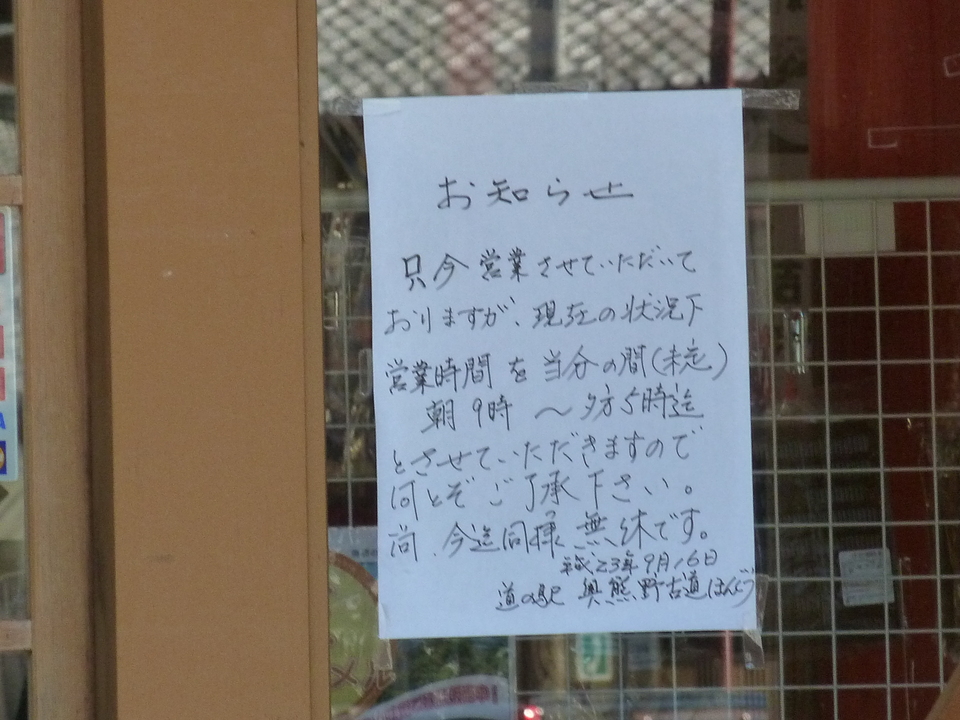 お知らせ
只今営業させていただいて
おりますが、現在の状況下
営業時間を当分の間(未定)
朝9時〜夕方5時迄
とさせていただきますので
何とぞご了承下さい。
尚、今迄同様無休です。
平成23年9月16日
道の駅 奥熊野古道ほんぐう